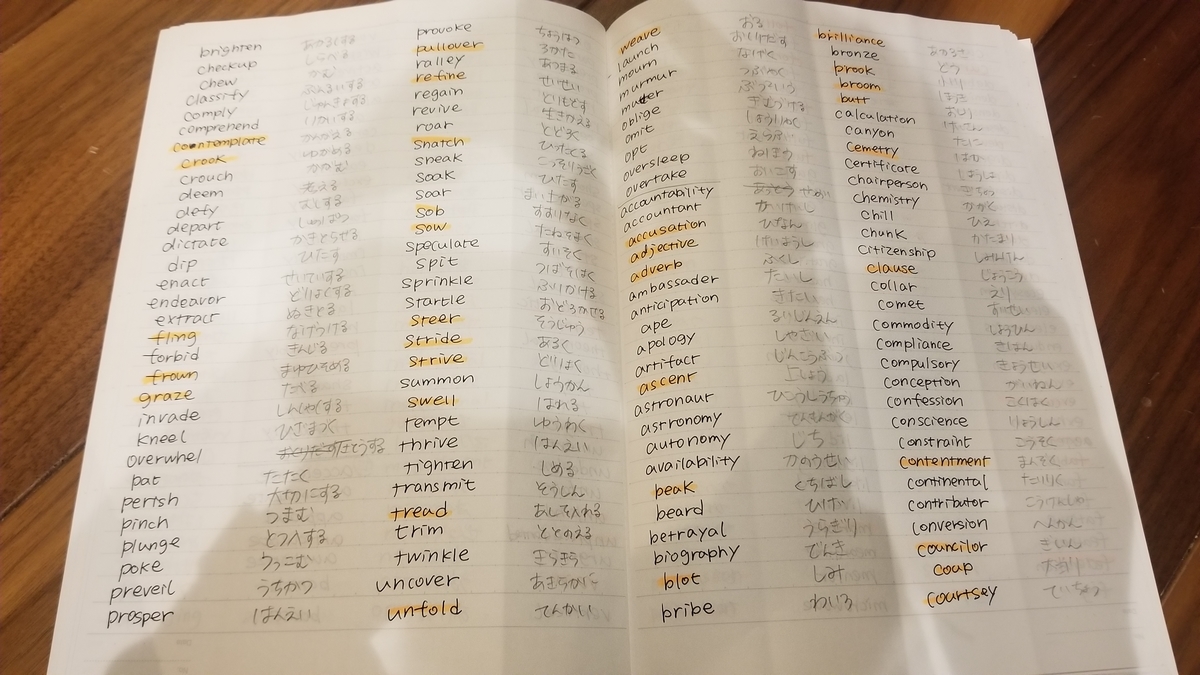 brighten あかるくする
checkup しらべる
chew かむ
classify ぶんるいする
comply
comprehend りかいする
contemplate かんがえる
crook ゆがめる
crouch かがむ
deem 考える
defy
depart しゅっぱつ
dictate かきとらせる
dip ひたす
enact せいていする
endeavor どりょくする
extract ぬきとる
fling なげつける
forbid きんじる
frown まゆひそめる
graze たべる
invade しんりゃくする
kneel ひざまつく
overwhel あっとうする
pat たたく
pertsh 大切にする
pinch つまむ
plunge とつへする
poke つっこむ
preveil うちかつ
prosper はんえい
provoke ちょうはつ
pullover
ralley あつまる
refine せいせい
regain とりもどす
revive 生きかえる
roar とどろく
snatch ひったくる
sneak こっそりうごく
soak ひたす
soar まい上がる
sob すすりなく
sow たねをまく
speculate すいそく
spit つばをはく
sprinkle ふりかける
startle おどろかせる
steer そうじゅう
stride あるく
strive どりょく
summon しょうかん
swell はれる
tempt ゆうわく
thrive はんえい
tighten しめる
transmit そうしん
tread あしを入れる
trim ととのえる
twinkle きらきら
uncover あきらかに
unfold てんかい
weave おる
launch
mourn なげく
murmur つぶやく
mutter ぶつぶついう
oblige ぎむづける
omit しょうりゃく
opt えらぶ
oversleep ねぼう
overtake おいこす
accountability
accountant かいけいし
accusation ひなん
adjective けいようし
adverb ふくし
ambassader たいし
anticipation きたい
ape るいじんえん
apology しゃざい
artifact じんこうぶつ
ascent 上しょう
astronaut ひこうしうちゅう
astronomy てんもんがく
autonomy じち
availability かのうせい
beak くちばし
beard ひげ
betrayal うらぎり
biography でんき
blot しみ
bribe わいろ
brilliance あかるさ
bronze どう
brook
broom ほうき
butt おしり
calculation けいさん
canyon たに
cemetry はか
certificate しょうしょ
chairperson ぎちょう
chemistry かがく
chill ひえ
chunk かたまり
citizenship しみんけん
clause じょうこう
collar えり
comet すいせい
commodity しょうひん
compliance きはん
compulsory きょうせい
conception がいねん
confession こくはく
conscience りょうしん
constraint こうそく
contentment まんぞく
continental たいりく
contributor こうけんしゃ
conversion へんかん
councilor ぎいん
coup
courtsey ていちょう